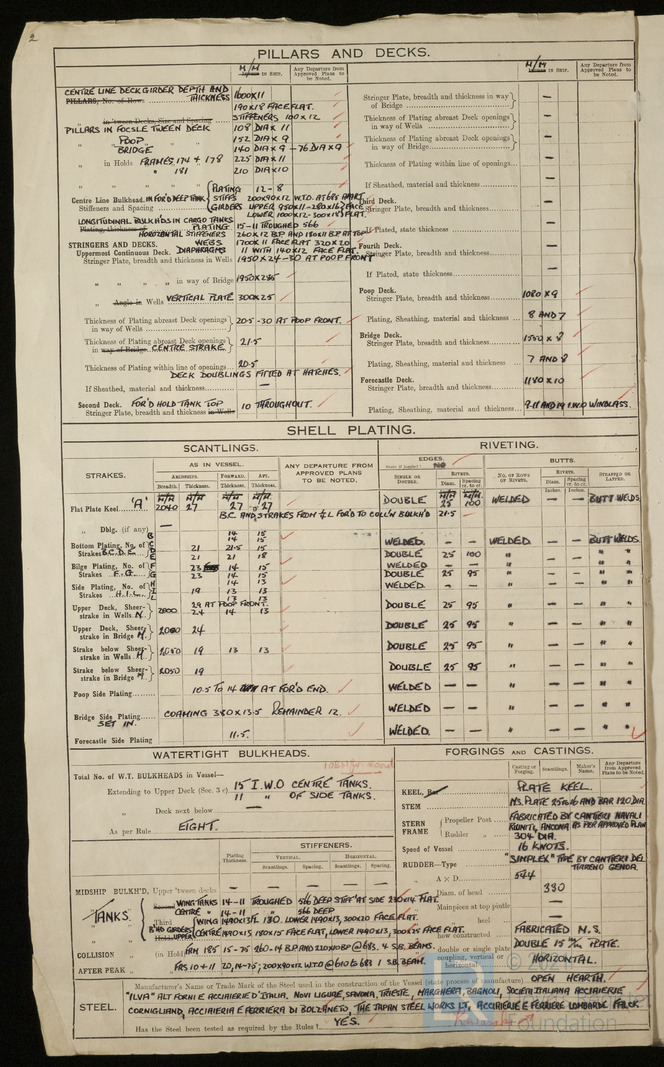 2
PILLARS AND DECKS.
M/M Inches in Ship. Any Departure from Approved Plans to be Noted.
CENTRE LINE DECK GIRDER DEPTH AND THICKNESS 1600X11
PILLARS, No. of Rows
190X18 FACE FLAT.
in 'tween Decks, Size and Spacing STIFFENERS 100X12
PILLARS IN FOCSLE TWEEN DECK 108 DIA X 11
" POOP 152 DIA X 9
" BRIDGE 140 DIA X 9 - 76 DIA X 9
" in Holds FRAMES 174 + 178 225 DIA X 11
" " 181 210 DIA X 10
Centre Line Bulkhead. IN FOR'D DEEP TANK PLATING 12-8
Stiffeners and Spacing STIFFS 200X90X12 W.T.O. AT 685 APART
GIRDERS UPPER 950X11-280X16 FACE FLAT
LOWER 1000X12-300X18 FLAT.
LONGITUDINAL BULKH'DS IN CARGO TANKS
Plating, thickness of PLATING 15-11 TROUGHED 566
HORIZONTAL STIFFENERS 260X12 B.P AND 180X11 B.P AT TOP
STRINGERS AND DECKS. WEBS 1700X11 FACE FLAT 320X20
Uppermost Continuous Deck. DIAPHRAGMS 11 WITH 140X12 FACE FLAT.
Stringer Plate, breadth and thickness in Wells 1950X24-30 AT POOP FRONT
" " " " in way of Bridge 1950X235
" Angle in Wells VERTICAL PLATE 300X25
Thickness of Plating abreast Deck openings in way of Wells 20.5-30 AT POOP FRONT.
Thickness of Plating abreast Deck openings in way of Bridge CENTRE STRAKE 21.5
Thickness of Plating within line of openings 20.5
DECK DOUBLINGS FITTED AT HATCHES.
If Sheathed, material and thickness —
Second Deck. FOR'D HOLD TANK TOP
Stringer Plate, breadth and thickness in Wells 10 THROUGHOUT.
M/M Inches in Ship. Any Departure from Approved Plans to be Noted.
Stringer Plate, breadth and thickness in way of Bridge —
Thickness of Plating abreast Deck openings in way of Wells —
Thickness of Plating abreast Deck openings in way of Bridge —
Thickness of Plating within line of openings —
If Sheathed, material and thickness —
Third Deck.
Stringer Plate, breadth and thickness —
If Plated, state thickness —
Fourth Deck.
Stringer Plate, breadth and thickness —
If Plated, state thickness —
Poop Deck.
Stringer Plate, breadth and thickness 1080 X 9
Plating, Sheathing, material and thickness 8 AND 7
Bridge Deck.
Stringer Plate, breadth and thickness 1550 X 8
Plating, Sheathing, material and thickness 7 AND 8
Forecastle Deck.
Stringer Plate, breadth and thickness 1180 X 10
Plating, Sheathing, material and thickness 9-11 AND 19 I.W.O WINDLASS.
SHELL PLATING.
SCANTLINGS. RIVETING.
STRAKES. AS IN VESSEL. ANY DEPARTURE FROM APPROVED PLANS TO BE NOTED. EDGES. BUTTS.
AMIDSHIPS. FORWARD. AFT.
Breadth. Thickness. Thickness. Thickness.
SINGLE OR DOUBLE. RIVETS. Diam. Spacing cr. to cr. No. OF ROWS OF RIVETS. RIVETS. Diam. Spacing cr. to cr. STRAPPED OR LAPPED.
Inches. Inches.
Flat Plate Keel 'A' 2040 27 27 27 DOUBLE 25 100 WELDED — — BUTT WELDS.
B.C AND STRAKES FROM ℄ FOR'D TO COLL'N BULKH'D 21.5
" Dblg. (if any) —
Bottom Plating, No. of Strakes B.C.D.E.
B 14 15 WELDED. — — WELDED — — BUTT WELDS.
C 14 15
D 21 21.5 15 DOUBLE 25 100 " — — " "
E 21 21 18
Bilge Plating, No. of Strakes F.G.
F 23 14 15 WELDED — — " — — " "
G 23 14 15 DOUBLE 25 95
Side Plating, No. of Strakes H.I.L.
H 14 13 WELDED — — " — — " "
I 19 13 13
L 13 13
29 AT POOP FRONT.
Upper Deck, Sheerstrake in Wells N. 2000 24 14 13 DOUBLE 25 95 " — — " "
Upper Deck, Sheerstrake in Bridge N. 2000 24 DOUBLE 25 95 " — — " "
Strake below Sheerstrake in Wells M. 2050 19 13 13 DOUBLE 25 95 " — — " "
Strake below Sheerstrake in Bridge M. 2050 19 DOUBLE 25 95 " — — " "
Poop Side Plating 10.5 TO 14 AT FOR'D END. WELDED — — " — — " "
Bridge Side Plating SET IN. COAMING 380X13.5 REMAINDER 12. WELDED — — " — — " "
Forecastle Side Plating 11.5. WELDED. — — " — — " "
WATERTIGHT BULKHEADS.
Total No. of W.T. BULKHEADS in Vessel—
Extending to Upper Deck (Sec. 3 c) 15 I.W.O CENTRE TANKS.
11 " OF SIDE TANKS.
" Deck next below —
As per Rule EIGHT.
STIFFENERS.
Plating Thickness. VERTICAL. HORIZONTAL.
Scantlings. Spacing. Scantlings. Spacing.
MIDSHIP BULKH'D, Upper 'tween decks — — — — —
"TANKS. Second WING TANKS 14-11 TROUGHED 566 DEEP STIFF AT SIDE 230X14 FLAT.
" CENTRE " 14-11 " 566 DEEP
" Third WING 1490X13/12 180. LOWER 1490X13, 300X20 FACE FLAT.
B'HD GIRDERS UPPER CENTRE 1490X15 180X15 FACE FLAT, LOWER 1490X13, 300X25 FACE FLAT.
COLLISION " (in Hold) FRM 185 15-75 260-14 B.P AND 220X10 BP @ 685. 4 S.B. BEAMS.
AFTER PEAK " " FRS 10+11 20,14-75; 200X90X12 W.T.O @ 610 TO 685 1 S.B. BEAM.
FORGINGS AND CASTINGS.
Casting or Forging. Scantlings. Maker's Name. Any Departure from Approved Plans to be Noted.
KEEL, Bar PLATE KEEL.
STEM M.S. PLATE 25 TO 16 AND BAR 120 DIA.
STERN FRAME Propeller Post FABRICATED BY CANTIERI NAVALI RIUNITI, ANCONA AS PER APPROVED PLAN
Rudder " 304 DIA.
Speed of Vessel 16 KNOTS.
RUDDER—Type "SIMPLEX" TYPE BY CANTIERI DEL TIRRENO GENOA.
" A X D. 544
" Diam. of head 330
" Mainpiece at top pintle —
" " heel —
" how constructed FABRICATED M.S.
" double or single plate DOUBLE 15 m/m PLATE.
" coupling, vertical or horizontal HORIZONTAL.
STEEL. Manufacturer's Name or Trade Mark of the Steel used in the construction of the Vessel (state process of manufacture) OPEN HEARTH.
"ILVA" ALTI FORNI E ACCIAIERIE D'ITALIA. NOVI LIGURE, SAVONA, TRIESTE, MARGHERA, BAGNOLI, SOCIETA ITALIANA ACCIAIERIE
CORNIGLIANO, ACCIAIERIA E FERRIERA DI BOLZANETO, THE JAPAN STEEL WORKS LTD., ACCIAIERIE E FERRIERE LOMBARDE FALCK
Has the Steel been tested as required by the Rules? YES.